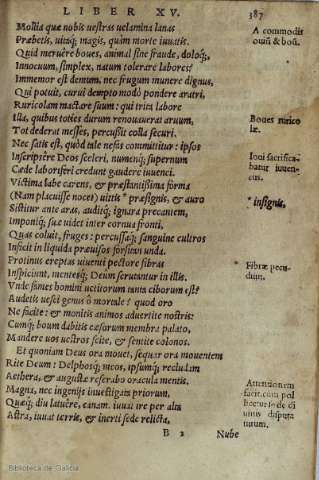 LIBER XV.
387
Mollia quæ nobis vestras uelamina lanas
Præbetis, uitaq; magis, quàm morte iuuatis.
Quid meruêre boues, animal sine fraude, doloq,
Innocuum, simplex, natum tolerare labores?
Immemor est demum, nec frugum munere dignus,
Qui potuit, curui dempto modò pondere aratri,
Ruricolam mactare suum: qui trita labore
Illa, quibus toties durum renouauerat aruum,
Tot dederat messes, percußit colla securi.
Nec satis est, quòd tale nefas committitur: ipsos
Inscripsêre Deos sceleri, numenq; supernum
Cæde laboriferi credunt gaudere iuuenci.
Victima labe carens, & præstantißima forma
(Nam placuisse nocet) uittis * præsignis, & auro
Sistitur ante aras, auditq; ignara precantem,
Imponiq; suæ uidet inter cornua fronti,
Quas coluit, fruges: percussaq; sanguine cultros
Inficit in liquida præuisos forsitan unda.
Protinus ereptas uiuenti pectore fibras
Inspiciunt, mentesq; Deum scrutantur in illis.
Unde fames homini uetitorum tanta ciborum est?
Audetis uesci genus ô mortale? quod oro
Ne facite: & monitis animos aduertite nostris:
Cumq; boum dabitis cæsorum membra palato,
Mandere uos uestros scite, & sentite colonos.
Et quoniam Deus ora mouet, sequar ora mouentem
Rite Deum: Delphosq; meos, ipsumq; recludam
Aethera, & augustæ reserabo oracula mentis.
Magna, nec ingenijs inuestigata priorum,
Quæq; diu latuêre, canam. iuuat ire per alta
Astra, iuuat terris, & inerti sede relicta,
B 2
Nube
A commodit
ouiũ & boũ.
Boues rurico
læ.
Ioui sacrifica-
batur iuuen-
cus.
* insignis,
Fibræ pecu-
dum.
Attentionem
facit, cum pol
licetur se de di
uinis disputa
turum.
Biblioteca de Galicia